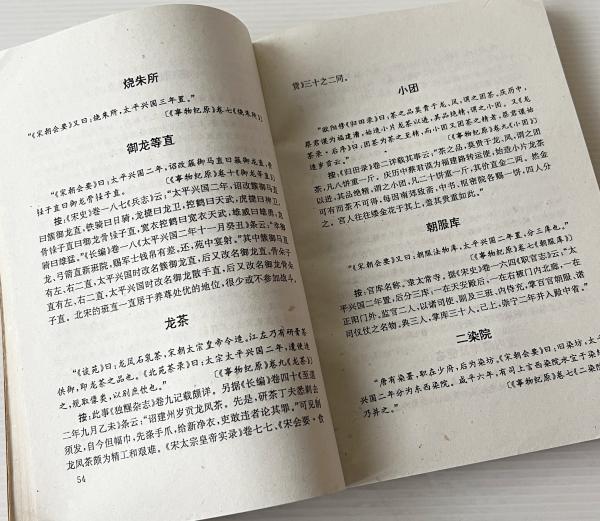 烧朱所
“《宋朝会要》又曰:烧朱所,太平兴国三年置。”
(《事物纪原》卷七《烧朱所》)
御龙等直
“《宋朝会要》曰:太平兴国二年,诏改簇御马直曰簇御龙直,骨
锤子直曰御龙骨锤子直。”
(《事物纪原》卷十《御龙等直》)
按:《宋史》卷一八七《兵志》云:“太平兴国二年,诏改簇御马直
曰簇御龙直,铁骑曰日骑,龙捷曰龙卫,控鹤曰天武,虎捷曰神卫,
骨锤子直曰御龙骨锤子直,宽衣控鹤曰宽衣天武,雄威曰雄勇,龙
骑曰雄猛。”《长编》卷一八《太平兴国二年十一月癸丑》条云:“幸御
龙、弓箭直新班院,赐军士钱帛有差,还,苑中宴射。”其中簇御马直
有左、右二直,太平兴国时改名簇御龙直,后又改名御龙直,骨朵子
直有左、右二直,太平兴国时改名御龙散手直,后又改名御龙骨朵
子直。北宋的班直一直居于养尊处优的地位,很少或不参加战斗。
龙茶
“《谈苑》曰:龙凤石乳茶,宋朝太宗皇帝令造。江左乃有研膏茶
供御,即龙茶之品也。《北苑茶录》曰:太宗太平兴国二年,遣使造
之,规取像类,以别庶饮也。”
(《事物纪原》卷九《龙茶》)
按:此事《独醒杂志》卷九记载颇详。另据《长编》卷四十《至道
二年九月乙未》条云:“诏建州岁贡龙凤茶。先是,研茶丁夫悉剃去
须发,自今但幅巾,先涤手爪,给新净衣,吏敢违者论其罪。”可见制
龙凤茶颇为精工和艰难。《宋太宗皇帝实录》卷七七、《宋会要·食
54
货》三十之二同。
小团
“欧阳修《归田录》曰:茶之品莫贵于龙、凤,谓之团茶。庆历中,
蔡君谟为福建漕,始造小片龙茶以进,其品绝精,谓之小团。又《龙
茶录·后序》曰:团茶为茶之至精,而小团又团茶之精者,蔡君谟始
造岁贡云。”
(《事物纪原》卷九《小团》)
按:《归田录》卷二详载其事云:“茶之品,莫贵于龙、凤,谓之团
茶,凡八饼重一斤。庆历中蔡君谟为福建路转运使,始造小片龙茶
以进,其品绝精,谓之小团,凡二十饼重一斤,其价直金二两。然金
可有而茶不可得,每因南郊致斋,中书、枢密院各赐一饼,四人分
之。宫人往往缕金花于其上,盖其贵重如此。
朝服库
“《宋朝会要》又曰:朝服法物库,太平兴国二年置,分三库也。”
(《事物纪原》卷七《朝服库》)
按:官库名称。隶太常寺。据《宋史》卷一六四《职官志》云:“太
平兴国二年置,后分三库:一在天安殿后,一在右掖门内北廊,一在
正阳门外。监官二人,以诸司使、副及三班、内侍充,掌百官朝服、诸
司仪仗之名物,典三人,掌库三十八人。已上,崇宁二年并入殿中省。”
二染院
“唐有染署,职在少府,后为染坊。《宋朝会要》曰:旧染坊,太
兴国二年分为东西染院。咸平六年,有司上言西染院水宜于染
乃并之。”
(《事物纪原》卷七《二染